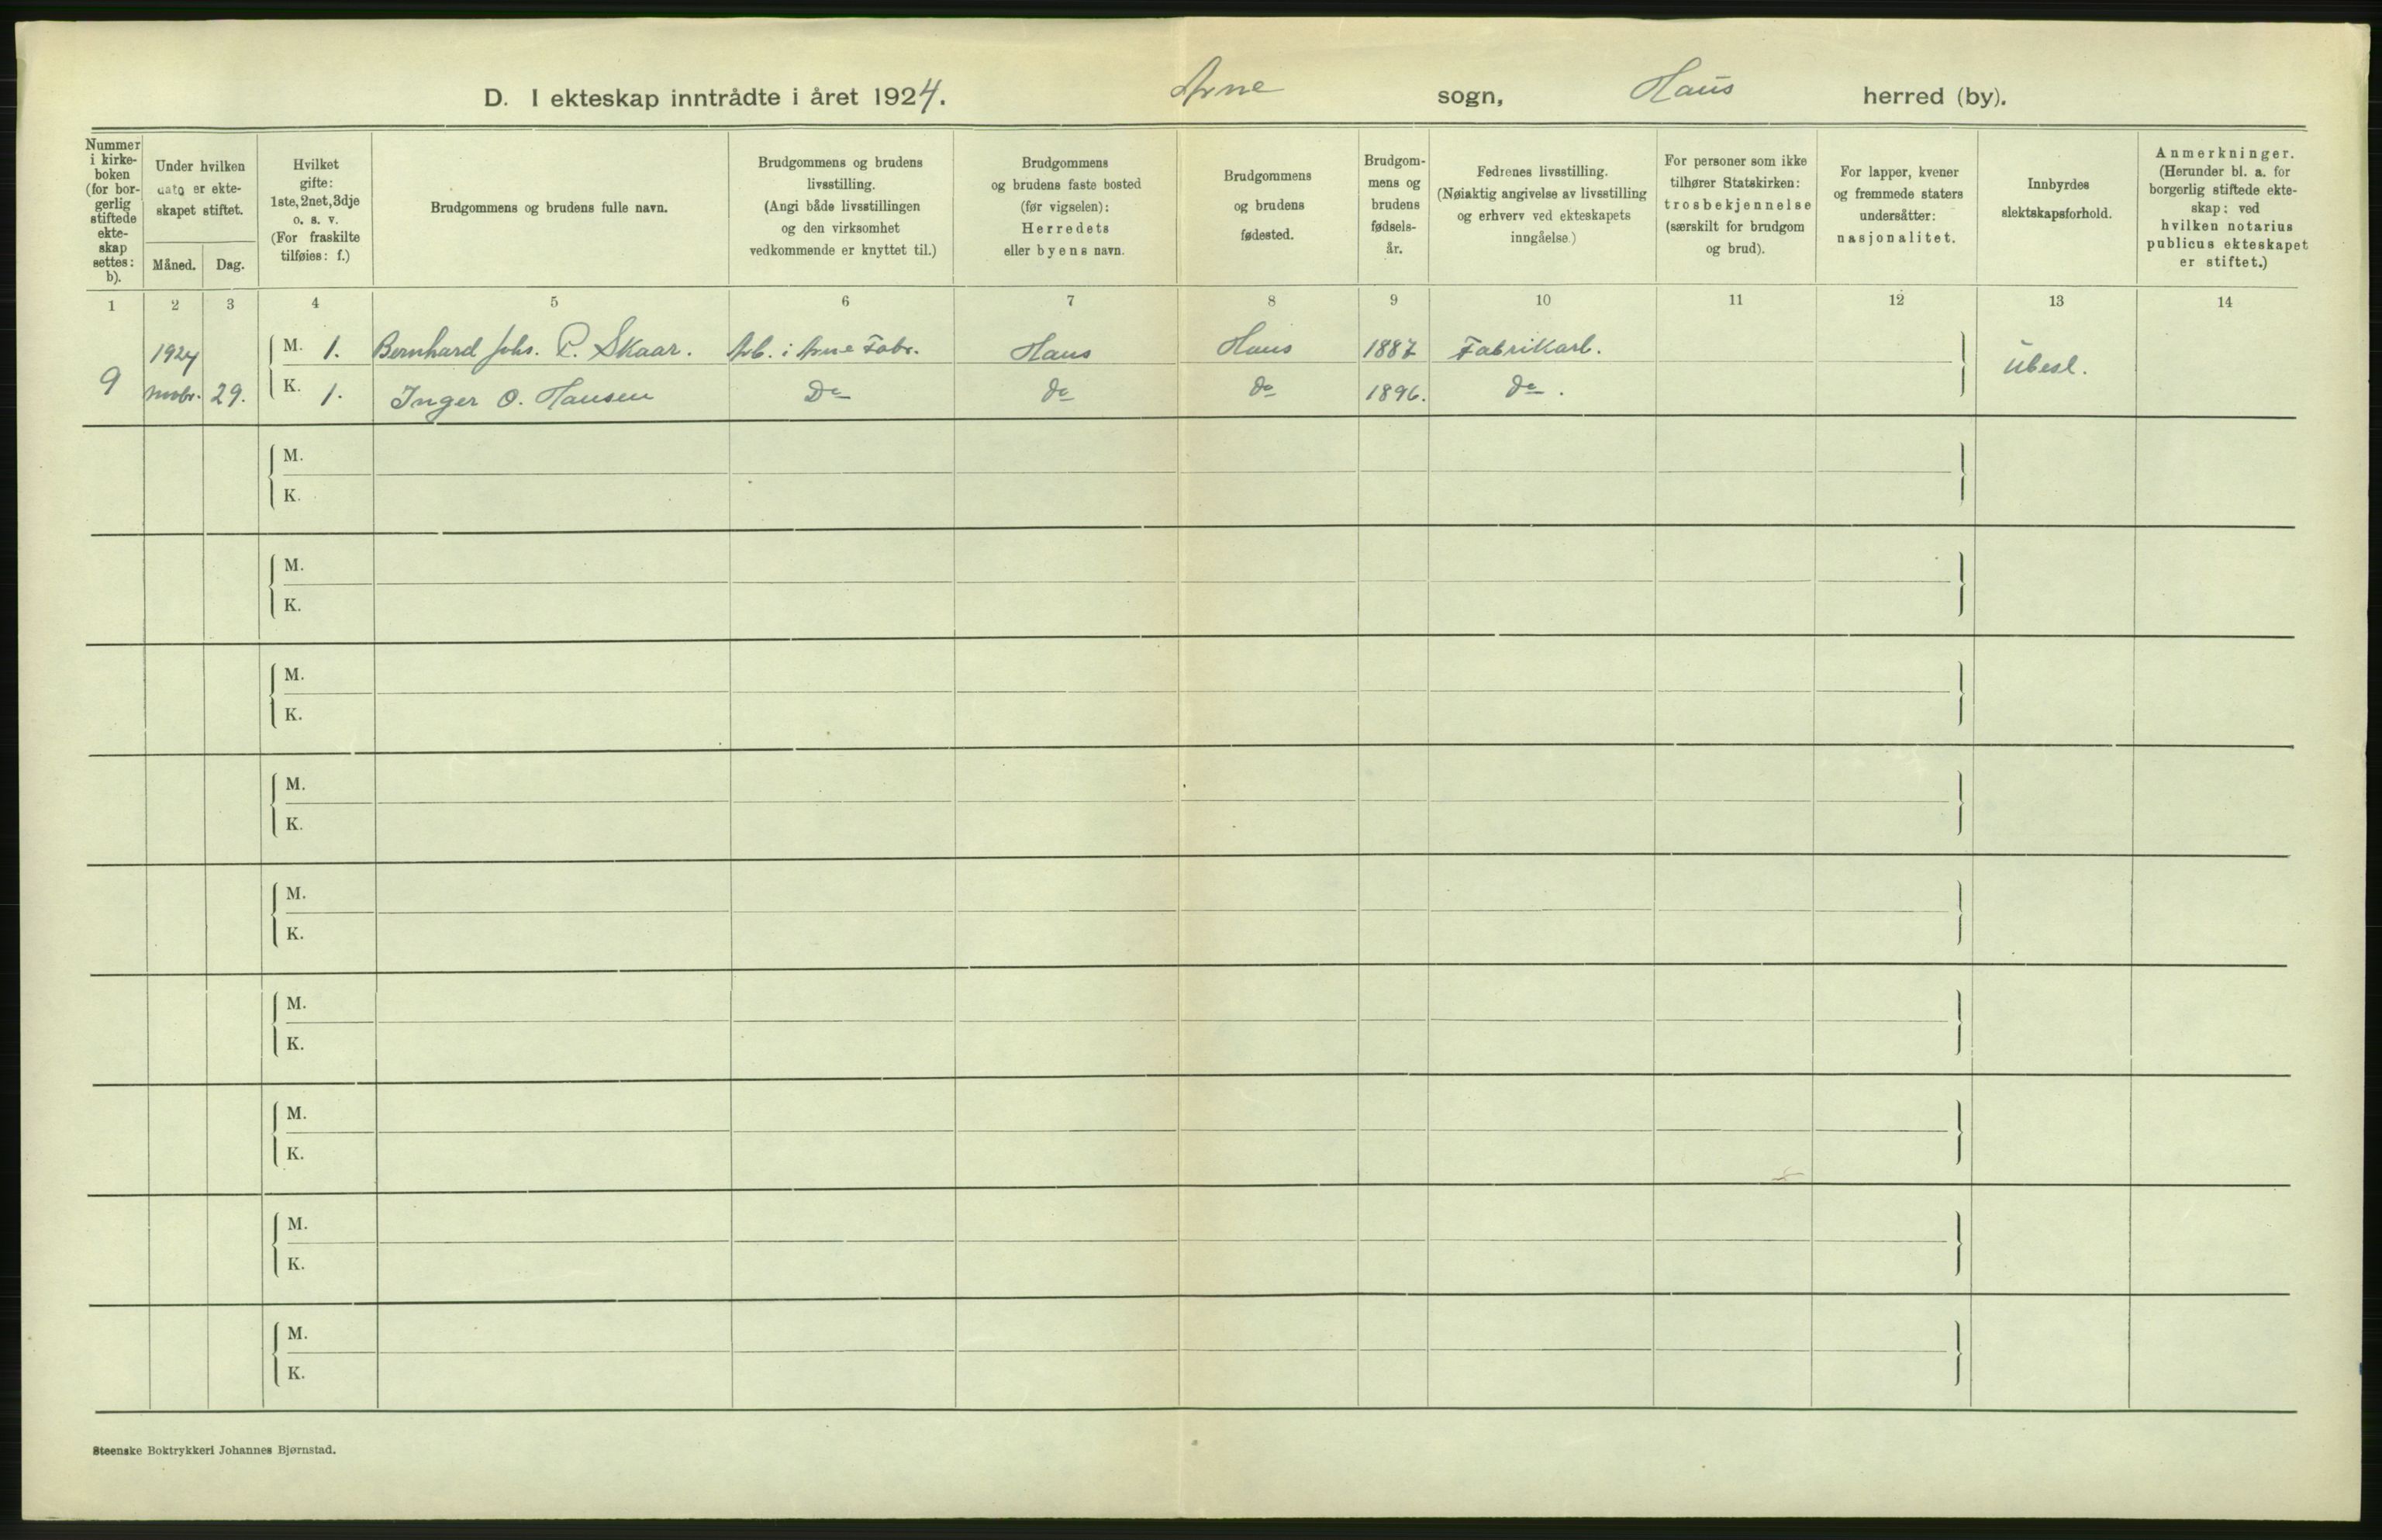 D. I ekteskap inntrådte i året 1924. Arne sogn, Haus herred (by).
Nummer i kirke-boken (for bor-gerlig stiftede ekte-skap settes: b).
Under hvilken dato er ekte-skapet stiftet.
Måned. Dag.
Hvilket gifte: 1ste, 2net, 3dje o. s. v. (For fraskilte tilføies: f.)
Brudgommens og brudens fulle navn.
Brudgommens og brudens livsstilling. (Angi både livsstillingen og den virksomhet vedkommende er knyttet til.)
Brudgommens og brudens faste bosted (før vigselen): Herredets eller byens navn.
Brudgommens og brudens fødested.
Brudgom-mens og brudens fødsels-år.
Fedrenes livsstilling. (Nøiaktig angivelse av livsstilling og erhverv ved ekteskapets inngåelse.)
For personer som ikke tilhører Statskirken: trosbekjennelse (særskilt for brudgom og brud).
For lapper, kvener og fremmede staters undersåtter: nasjonalitet.
Innbyrdes slektskapsforhold.
Anmerkninger. (Herunder bl. a. for borgerlig stiftede ekte-skap: ved hvilken notarius publicus ekteskapet er stiftet.)
1 2 3 4 5 6 7 8 9 10 11 12 13 14
1924 M. 1. Bernhard Johs. P. Skaar. Arb. i Arne Fabr. Haus Haus 1887 Fabrikarb. Ubesl.
9 novbr. 29. K. 1. Inger O. Hansen Do do do 1896. do.
M.
K.
M.
K.
M.
K.
M.
K.
M.
K.
M.
K.
M.
K.
M.
K.
M.
K.
Steenske Boktrykkeri Johannes Bjørnstad.